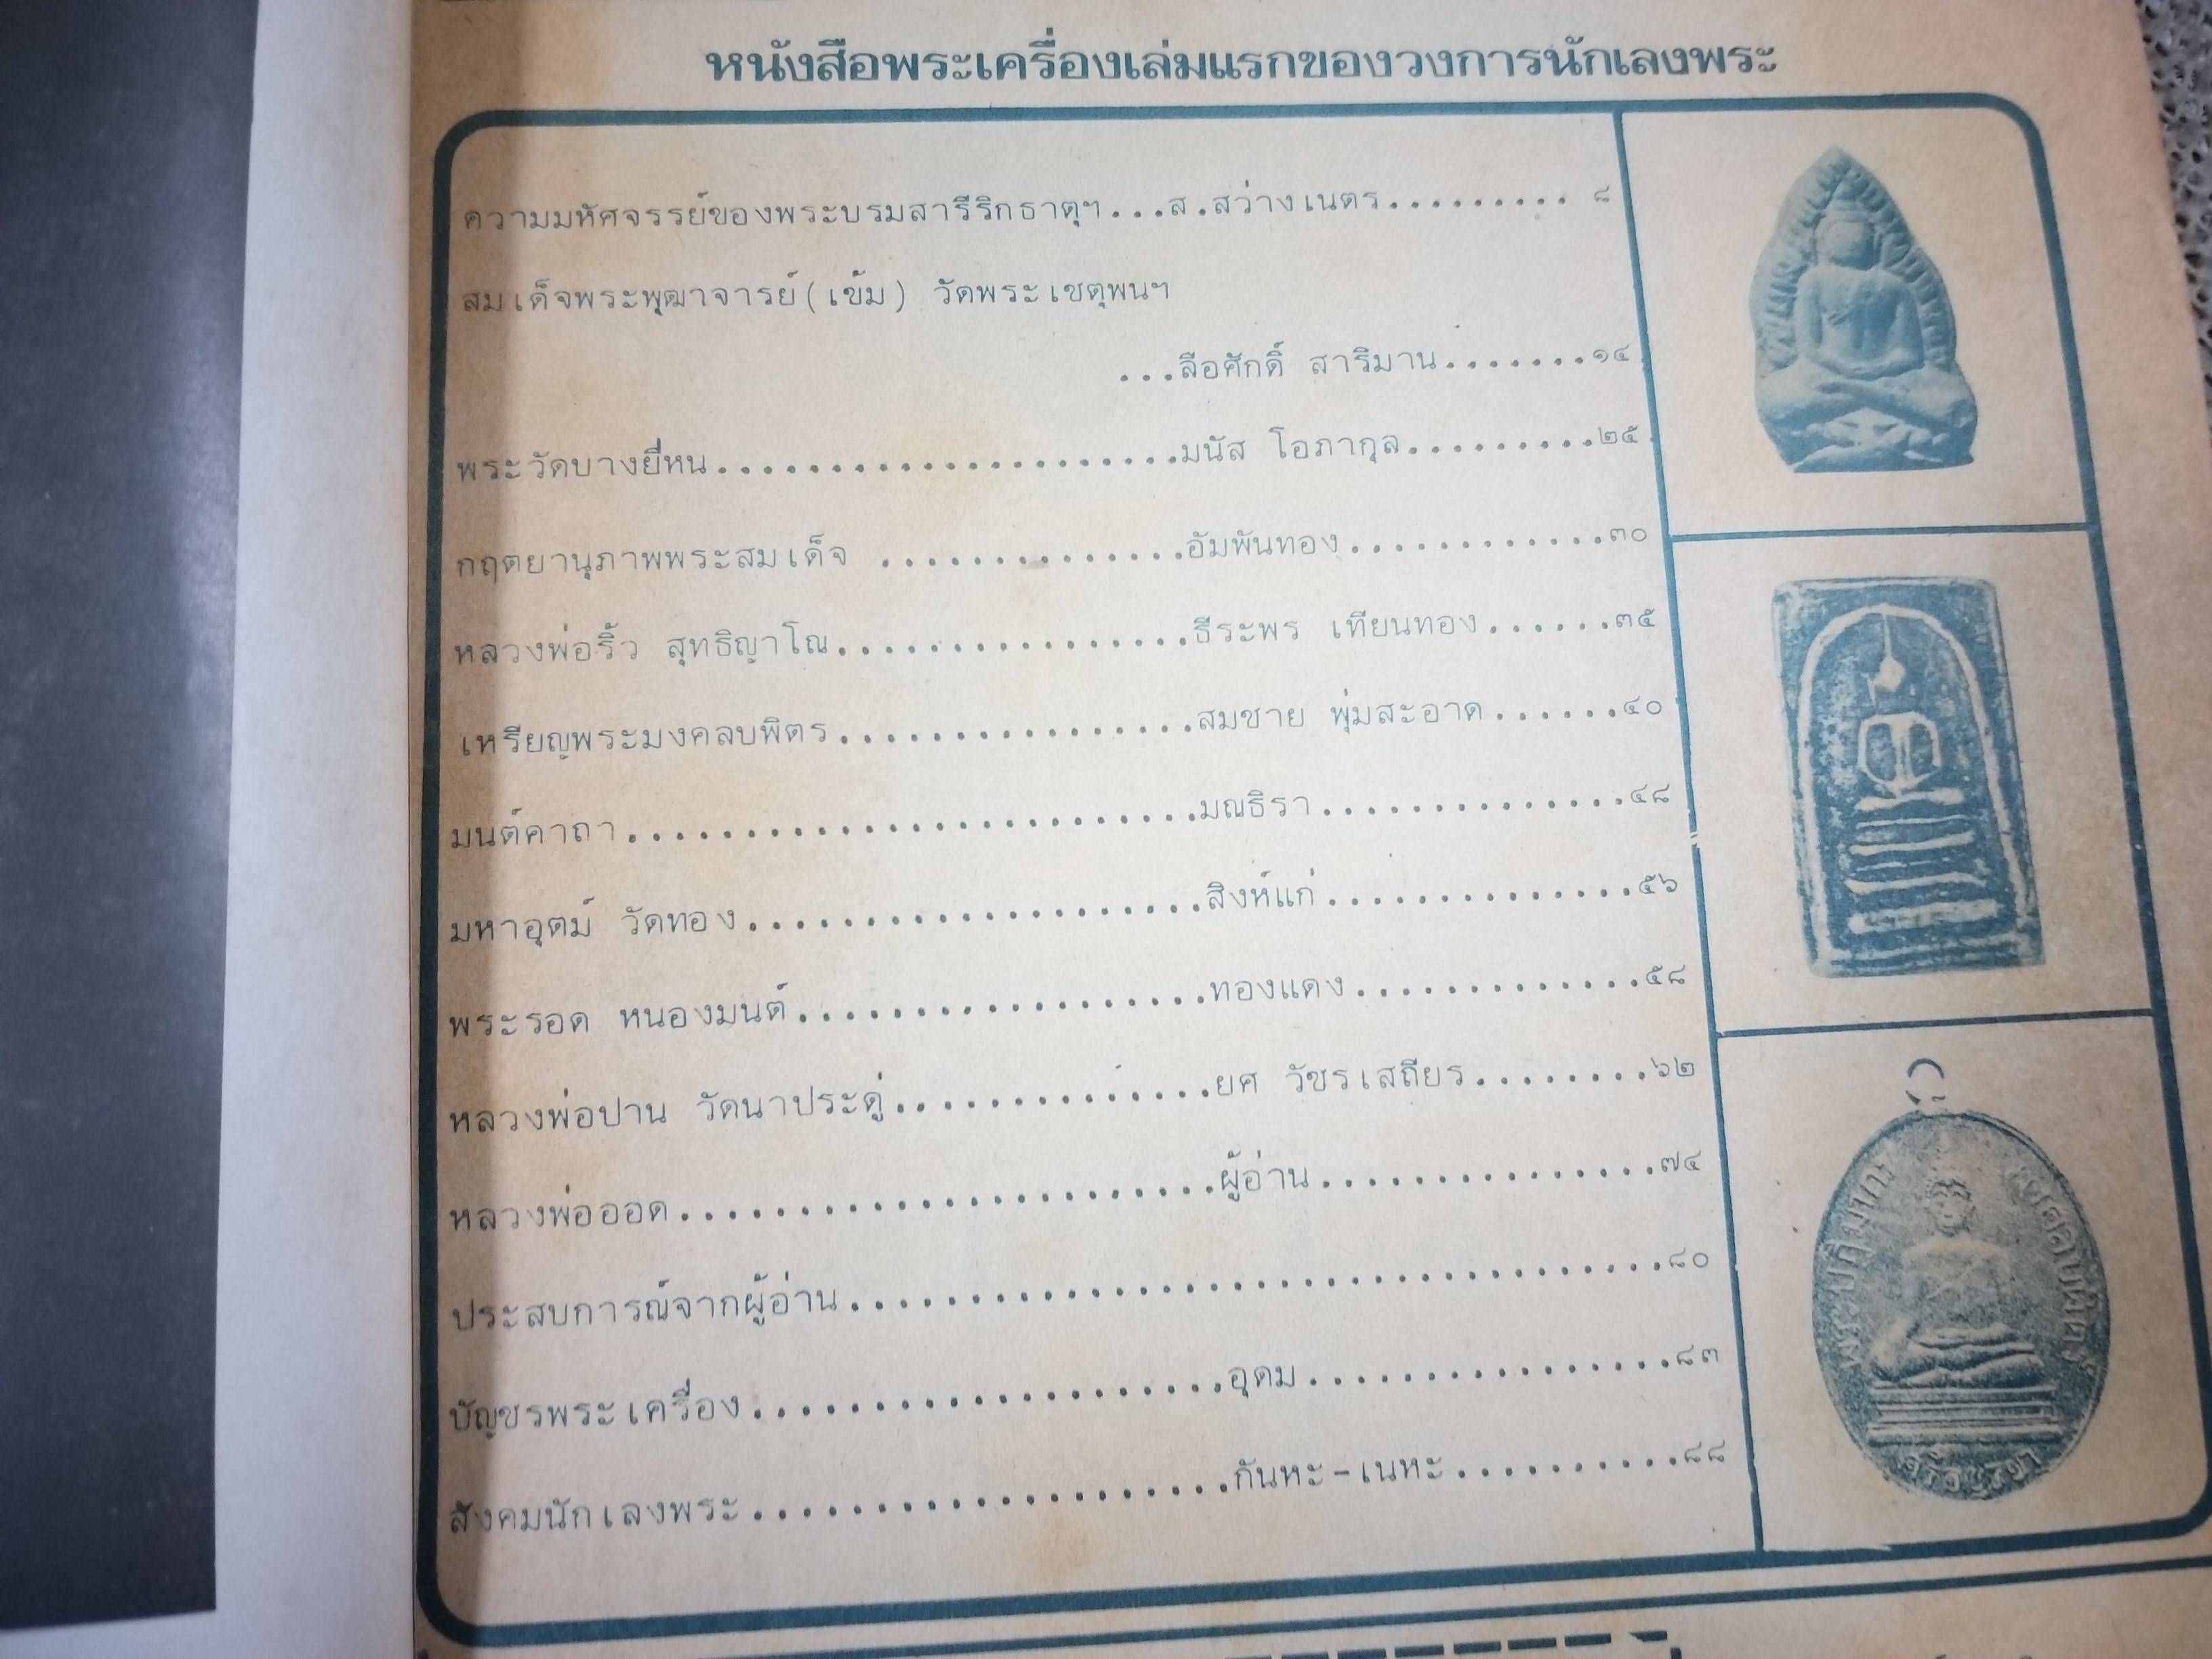 หนังสือพระเครื่องเล่มแรกของวงการนักเลงพระ
ความมหัศจรรย์ของพระบรมสารีริกธาตุฯ...ส.สว่างเนตร......... ๘
สมเด็จพระพุฒาจารย์(เข้ม) วัดพระเชตุพนฯ
...ลือศักดิ์ สาริมาน.......๑๔
พระวัดบางยี่หน....................มนัส โอภากุล.........๒๕
กฤตยานุภาพพระสมเด็จ ..............อัมพันทอง............๓๐
หลวงพ่อริ้ว สุทธิญาโณ................ธีระพร เทียนทอง......๓๕
เหรียญพระมงคลบพิตร................สมชาย พุ่มสะอาด......๔๐
มนต์คาถา.........................มณธิรา..............๔๘
มหาอุตม์ วัดทอง....................สิงห์แก่..............๕๖
พระรอด หนองมนต์..................ทองแดง.............๕๘
หลวงพ่อปาน วัดนาประดู่..............ยศ วัชรเสถียร........๖๒
หลวงพ่อออด.......................ผู้อ่าน...............๗๔
ประสบการณ์จากผู้อ่าน....................................๘๐
บัญชรพระเครื่อง....................อุดม................๘๓
สังคมนักเลงพระ....................กันหะ-เนหะ..........๘๘